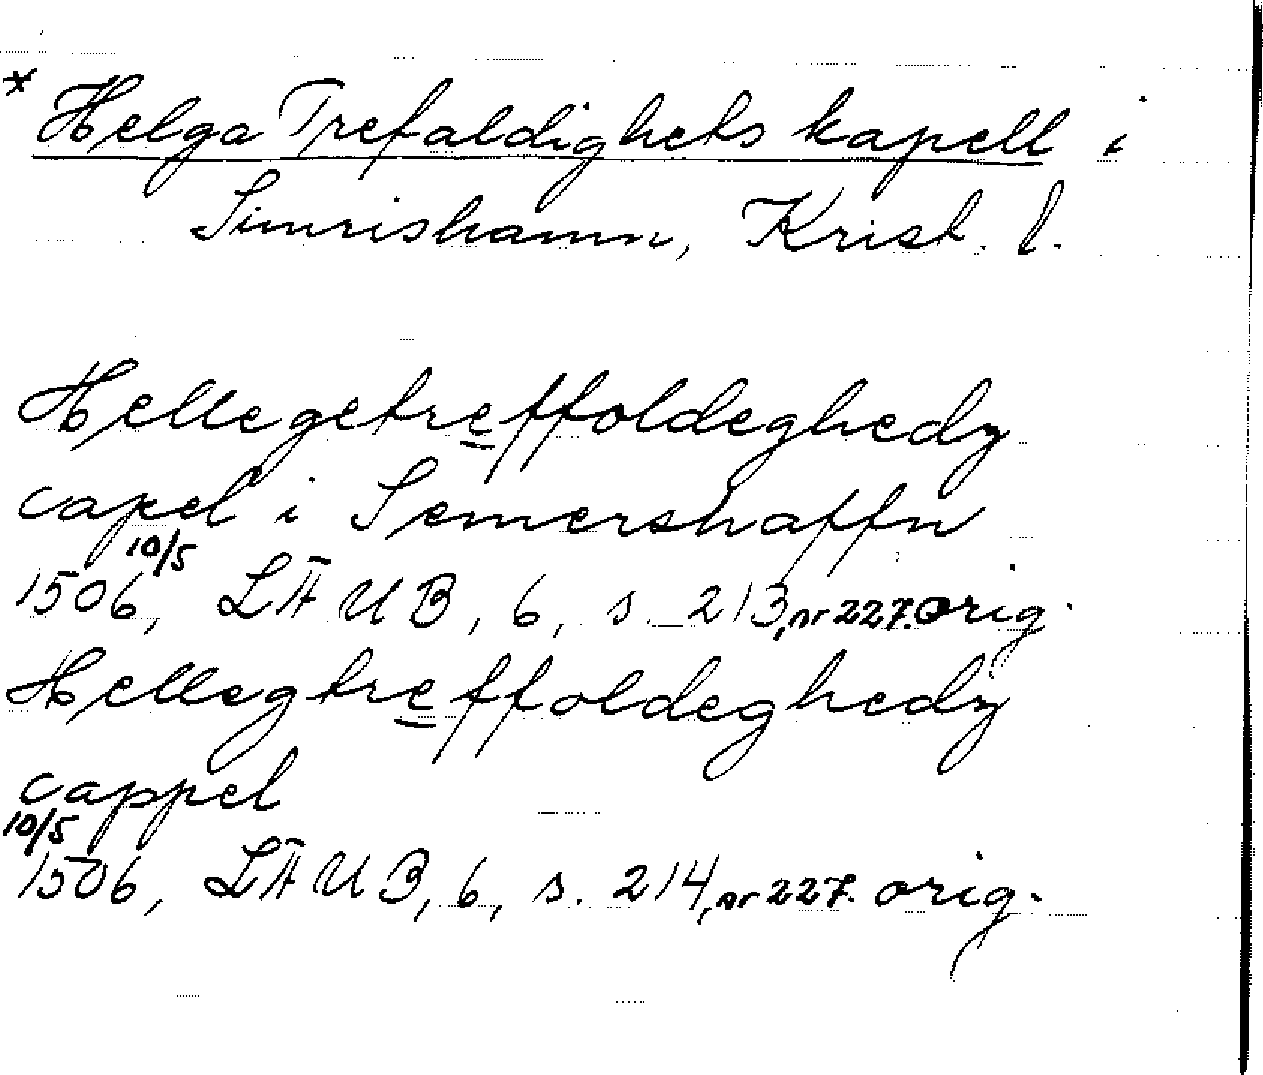 * Helga Trefaldighets kapell i
Simrishamn, Krist. l.
Hellegetreffoldeghedz
capel i Semershaffn
10/5
1506, LÄUB, 6, s. 213, nr 227. orig.
Hellegtreffoldeghedz
cappel
10/5
1506, LÄUB, 6, s. 214, nr 227. orig.